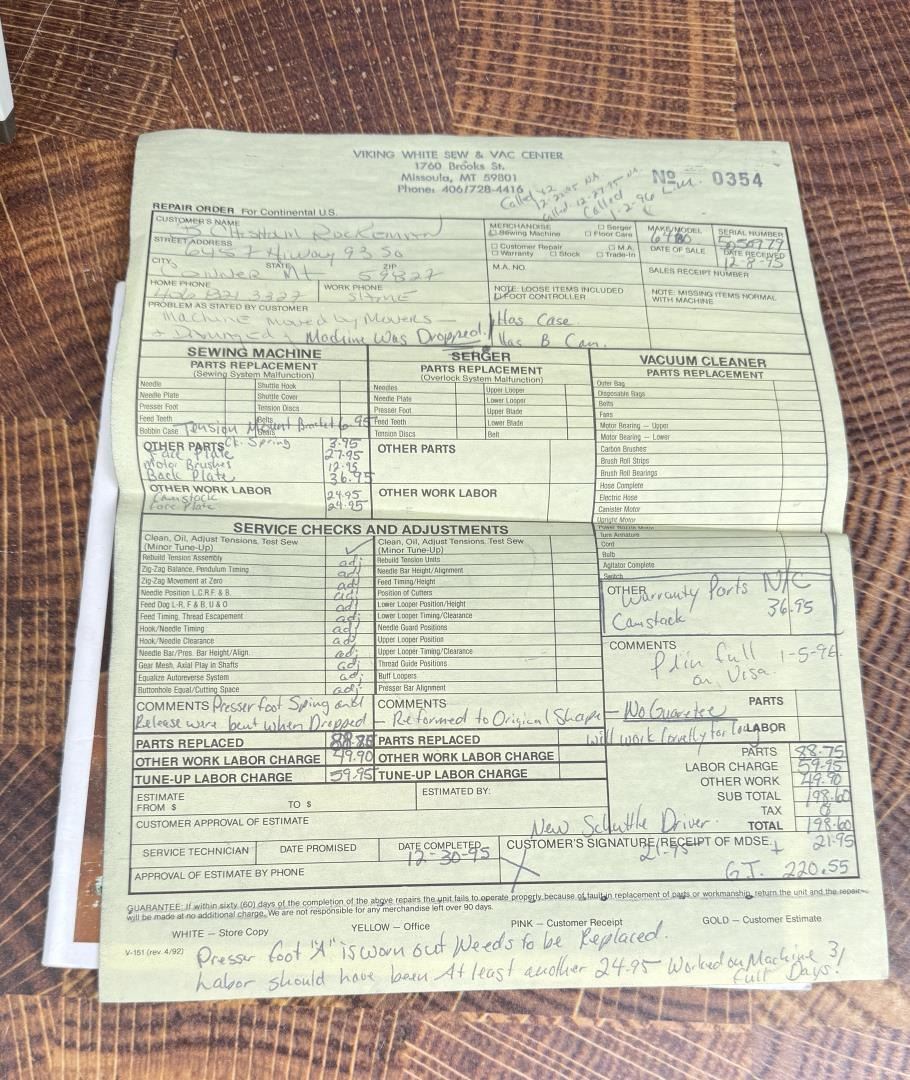 VIKING WHITE SEW & VAC CENTER
1760 Brooks St.
Missoula, MT 59801
Phone: 406/728-4416
Nº 0354
Called 12-22-95 NA
Called 12-27-95 NA
Called 1-2-96
REPAIR ORDER For Continental U.S.
CUSTOMER'S NAME
STREET ADDRESS
6457 Hiway 93 So
CITY STATE ZIP
Conner Mt 59827
HOME PHONE WORK PHONE
406 821 3327 SAME
PROBLEM AS STATED BY CUSTOMER
Machine moved by Movers —
+ Damaged Machine Was Dropped!
MERCHANDISE
☐ Sewing Machine ☐ Serger ☐ Floor Care
☐ Customer Repair ☐ M.A.
☐ Warranty ☐ Stock ☐ Trade-In
M.A. NO.
MAKE/MODEL
SERIAL NUMBER
DATE OF SALE
DATE RECEIVED
12-8-95
SALES RECEIPT NUMBER
NOTE: LOOSE ITEMS INCLUDED
☐ FOOT CONTROLLER
NOTE: MISSING ITEMS NORMAL
WITH MACHINE
Has Case
Has B Cam.
SEWING MACHINE
PARTS REPLACEMENT
(Sewing System Malfunction)
Needle Shuttle Hook
Needle Plate Shuttle Cover
Presser Foot Tension Discs
Feed Teeth Belts
Bobbin Case Gears
Tension Mount Bracket 6.95
OTHER PARTS Ck. Spring 3.95
Face Plate 27.95
Motor Brushes 12.95
Back Plate 36.95
OTHER WORK LABOR
Camstack 24.95
Face Plate 24.95
SERGER
PARTS REPLACEMENT
(Overlock System Malfunction)
Needles Upper Looper
Needle Plate Lower Looper
Presser Foot Upper Blade
Feed Teeth Lower Blade
Tension Discs Belt
OTHER PARTS
OTHER WORK LABOR
VACUUM CLEANER
PARTS REPLACEMENT
Outer Bag
Disposable Bags
Belts
Fans
Motor Bearing — Upper
Motor Bearing — Lower
Carbon Brushes
Brush Roll Strips
Brush Roll Bearings
Hose Complete
Electric Hose
Canister Motor
Upright Motor
Power Nozzle Motor
Turn Armature
Cord
Bulb
Agitator Complete
Switch
OTHER Warranty Parts N/C
Camstack 36.95
COMMENTS
Pd in full 1-5-96
on Visa.
SERVICE CHECKS AND ADJUSTMENTS
Clean, Oil, Adjust Tensions, Test Sew
(Minor Tune-Up) ✓
Rebuild Tension Assembly adj
Zig-Zag Balance, Pendulum Timing adj
Zig-Zag Movement at Zero adj
Needle Position L.C.R.F. & B. adj
Feed Dog L-R, F & B, U & D adj
Feed Timing, Thread Escapement adj
Hook/Needle Timing adj
Hook/Needle Clearance adj
Needle Bar/Pres. Bar Height/Align. adj
Gear Mesh, Axial Play in Shafts adj
Equalize Autoreverse System adj
Buttonhole Equal/Cutting Space adj
Clean, Oil, Adjust Tensions, Test Sew
(Minor Tune-Up)
Rebuild Tension Units
Needle Bar Height/Alignment
Feed Timing/Height
Position of Cutters
Lower Looper Position/Height
Lower Looper Timing/Clearance
Needle Guard Positions
Upper Looper Position
Upper Looper Timing/Clearance
Thread Guide Positions
Buff Loopers
Presser Bar Alignment
COMMENTS Presser foot Spring and
Release were bent when Dropped
COMMENTS
— Reformed to Original Shape — No Guarantee
PARTS
LABOR
PARTS REPLACED 88.75
OTHER WORK LABOR CHARGE 49.90
TUNE-UP LABOR CHARGE 59.95
PARTS REPLACED
OTHER WORK LABOR CHARGE
TUNE-UP LABOR CHARGE
PARTS 88.75
LABOR CHARGE 59.95
OTHER WORK 49.90
SUB TOTAL 198.60
TAX 0
TOTAL 198.60
ESTIMATE
FROM $ TO $
ESTIMATED BY:
CUSTOMER APPROVAL OF ESTIMATE
New Schuttle Driver. + 21.95
SERVICE TECHNICIAN DATE PROMISED DATE COMPLETED
12-30-95
CUSTOMER'S SIGNATURE/RECEIPT OF MDSE.
21.95
X
G.T. 220.55
APPROVAL OF ESTIMATE BY PHONE
GUARANTEE: If within sixty (60) days of the completion of the above repairs the unit fails to operate properly because of fault in replacement of parts or workmanship, return the unit and the repair
will be made at no additional charge. We are not responsible for any merchandise left over 90 days.
WHITE — Store Copy YELLOW — Office PINK — Customer Receipt GOLD — Customer Estimate
V-151 (rev. 4/92)
Presser foot "A" is worn out Needs to be Replaced.
Labor should have been At least another 24.95 Worked on Machine 3
full Days!